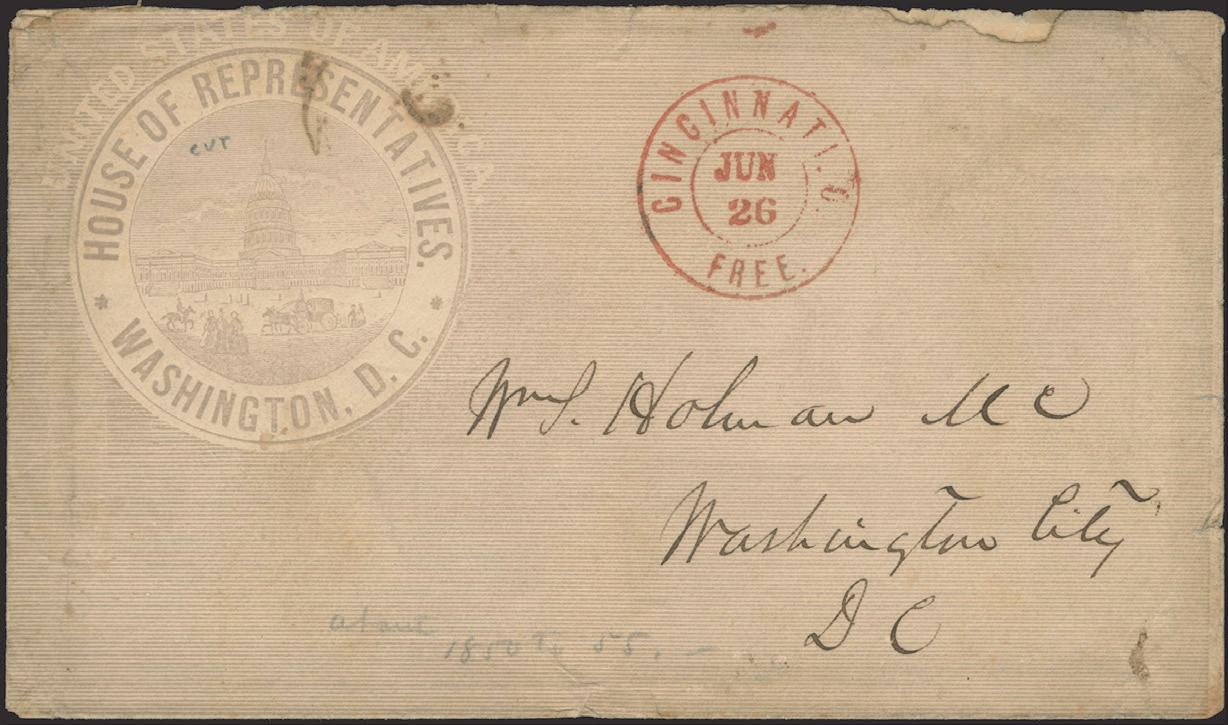 UNITED STATES OF AMERICA.
HOUSE OF REPRESENTATIVES.
WASHINGTON, D. C.
CUT
CINCINNATI. O.
JUN
26
FREE.
Wm S. Holman M C
Washington City
D C
about
1850 to 55. –